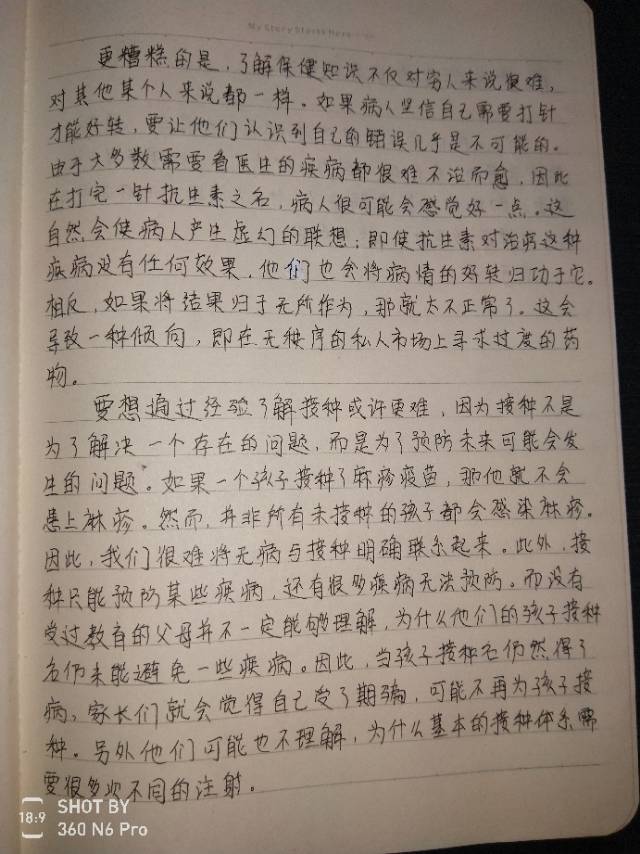 My Story Starts Here
更糟糕的是，了解保健知识不仅对穷人来说很难，
对其他某个人来说都一样。如果病人坚信自己需要打针
才能好转，要让他们认识到自己的错误几乎是不可能的。
由于大多数需要看医生的疾病都很难不治而愈，因此
在打完一针抗生素之名，病人很可能会感觉好一点。这
自然会使病人产生虚幻的联想：即使抗生素对治病这种
疾病没有任何效果，他们也会将病情的好转归功于它。
相反，如果将结果归于无所作为，那就太不正常了。这会
导致一种倾向，即在无秩序的私人市场上寻求过度的药
物。
要想通过经验了解接种或许更难，因为接种不是
为了解决一个存在的问题，而是为了预防未来可能会发
生的问题。如果一个孩子接种了麻疹疫苗，那他就不会
患上麻疹。然而，并非所有未接种的孩子都会感染麻疹。
因此，我们很难将无病与接种明确联系起来。此外，接
种只能预防某些疾病，还有很多疾病无法预防。而没有
受过教育的父母并不一定能够理解，为什么他们的孩子接种
名仍未能避免一些疾病。因此，当孩子接种名仍然得了
病，家长们就会觉得自己受了期骗，可能不再为孩子接
种。另外他们可能也不理解，为什么基本的接种体系需
要很多次不同的注射。
18:9
SHOT BY
360 N6 Pro